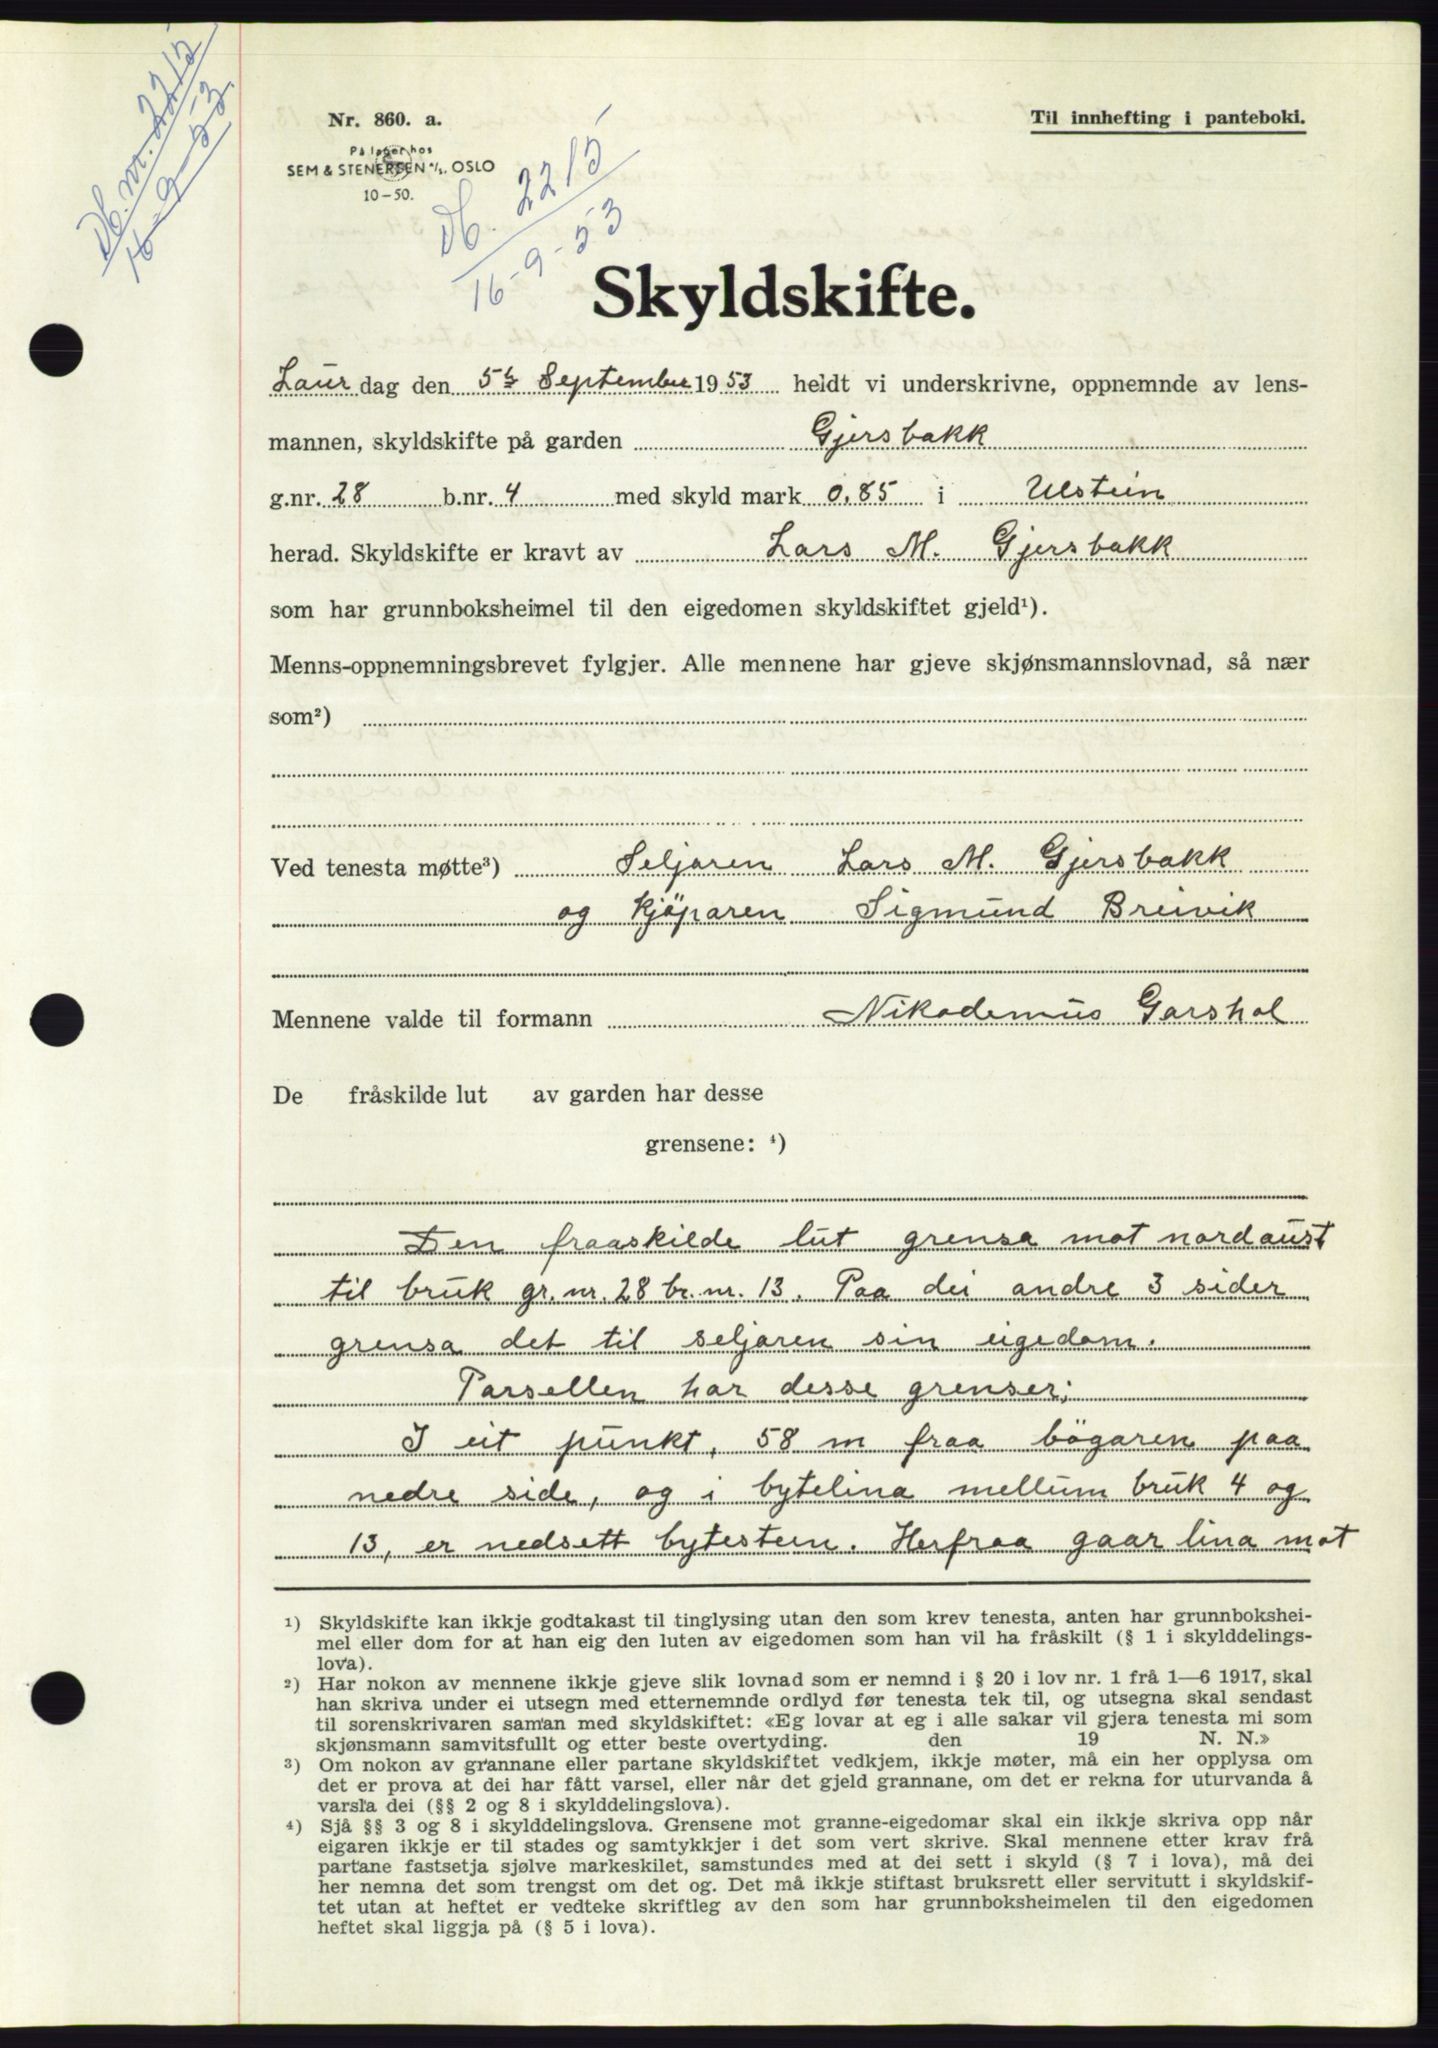 Db. nr. 2215
16-9-53.
Nr. 860. a.
På lager hos
SEM & STENERSEN A/S. OSLO
10-50.
Til innhefting i panteboki.
Db. 2215
16-9-53
Skyldskifte.
Laur dag den 5te September 1953 heldt vi underskrivne, oppnemnde av lens-
mannen, skyldskifte på garden Gjersbakk
g.nr. 28 b.nr. 4 med skyld mark 0.85 i Ulstein
herad. Skyldskifte er kravt av Lars M. Gjersbakk
som har grunnboksheimel til den eigedomen skyldskiftet gjeld¹).
Menns-oppnemningsbrevet fylgjer. Alle mennene har gjeve skjønsmannslovnad, så nær
som²)
Ved tenesta møtte³) Seljaren Lars M. Gjersbakk
og kjöparen Sigmund Breivik
Mennene valde til formann Nikodemus Garshol
De fråskilde lut av garden har desse
grensene: ⁴)
Den fraaskilde lut grensa mot nordaust
til bruk gr. nr. 28 br. nr. 13. Paa dei andre 3 sider
grensa det til seljaren sin eigedom.
Parsellen har desse grenser;
I eit punkt, 58 m fraa bögaren paa
nedre side, og i bytelina mellum bruk 4 og
13, er nedsett bytestein. Herfraa gaar lina mot
¹) Skyldskifte kan ikkje godtakast til tinglysing utan den som krev tenesta, anten har grunnbokshei-
mel eller dom for at han eig den luten av eigedomen som han vil ha fråskilt (§ 1 i skylddelings-
lova).
²) Har nokon av mennene ikkje gjeve slik lovnad som er nemnd i § 20 i lov nr. 1 frå 1—6 1917, skal
han skriva under ei utsegn med etternemnde ordlyd før tenesta tek til, og utsegna skal sendast
til sorenskrivaren saman med skyldskiftet: «Eg lovar at eg i alle sakar vil gjera tenesta mi som
skjønsmann samvitsfullt og etter beste overtyding. den 19 N. N.»
³) Om nokon av grannane eller partane skyldskiftet vedkjem, ikkje møter, må ein her opplysa om
det er prova at dei har fått varsel, eller når det gjeld grannane, om det er rekna for uturvanda å
varsla dei (§§ 2 og 8 i skylddelingslova).
⁴) Sjå §§ 3 og 8 i skylddelingslova. Grensene mot granne-eigedomar skal ein ikkje skriva opp når
eigaren ikkje er til stades og samtykkjer i det som vert skrive. Skal mennene etter krav frå
partane fastsetja sjølve markeskilet, samstundes med at dei sett i skyld (§ 7 i lova), må dei
her nemna det som trengst om det og. Det må ikkje stiftast bruksrett eller servitutt i skyldskif-
tet utan at heftet er vedteke skriftleg av den som har grunnboksheimelen til den eigedomen
heftet skal liggja på (§ 5 i lova).